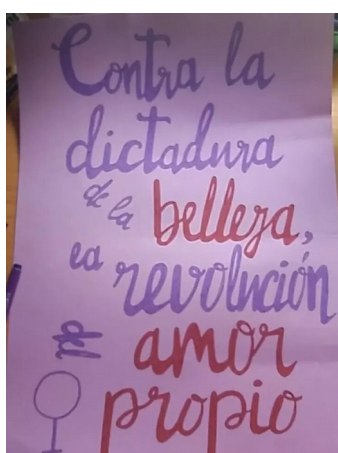 Contra la
dictadura
de la belleza,
la revolución
del amor
propio